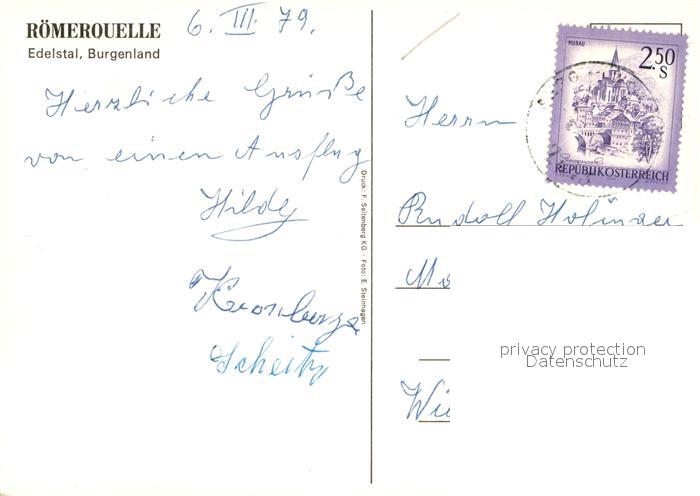 RÖMERQUELLE
Edelstal, Burgenland
6. III. 79.
Herzliche Grüße
von einen Ausflug
Hilde
Scheitz
Druck: F. Seitenberg KG - Foto: E. Steinhagen
MURAU
2.50
S
REPUBLIK ÖSTERREICH
Herrn
Rudolf
privacy protection
Datenschutz